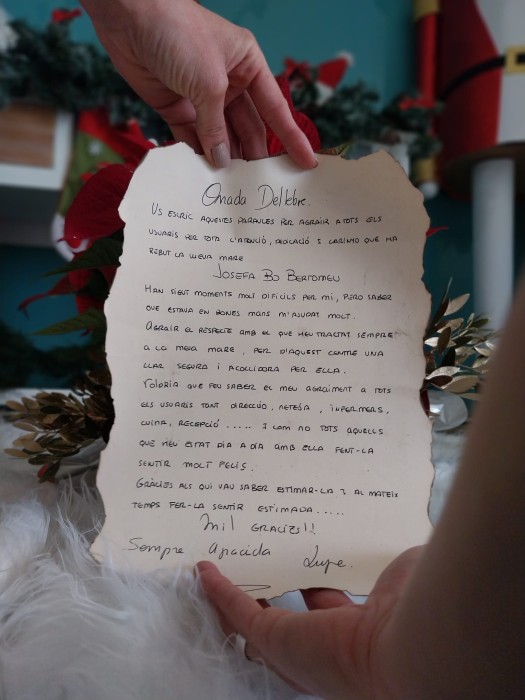 Onada Dellebre.
US ESCRIC AQUESTES PARAULES PER AGRAIR A TOTS ELS
USUARIS PER TOTA L'ATENCIÓ, DEDICACIÓ I CARINYO QUE HA
REBUT LA MEVA MARE
JOSEFA BO BERTOMEU
HAN SIGUT MOMENTS MOLT DIFÍCILS PER MI, PERO SABER
QUE ESTAVA EN BONES MANS M'AJUDAT MOLT.
AGRAIR EL RESPECTE AMB EL QUE HEU TRACTAT SEMPRE
A LA MEVA MARE, FER D'AQUEST CENTRE UNA
LLAR SEGURA I ACOLLIDORA PER ELLA.
VOLDRIA QUE FEU SABER EL MEU AGRAIMENT A TOTS
ELS USUARIS TANT DIRECCIÓ, NETEJA, INFERMERS,
CUINA, RECEPCIÓ ..... I COM NO TOTS AQUELLS
QUE HEU ESTAT DIA A DIA AMB ELLA FENT-LA
SENTIR MOLT FELIS.
GRÀCIES ALS QUI VAU SABER ESTIMAR-LA I AL MATEIX
TEMPS FER-LA SENTIR ESTIMADA.....
Mil GRACIES!!
Sempre Agraida Lupe.